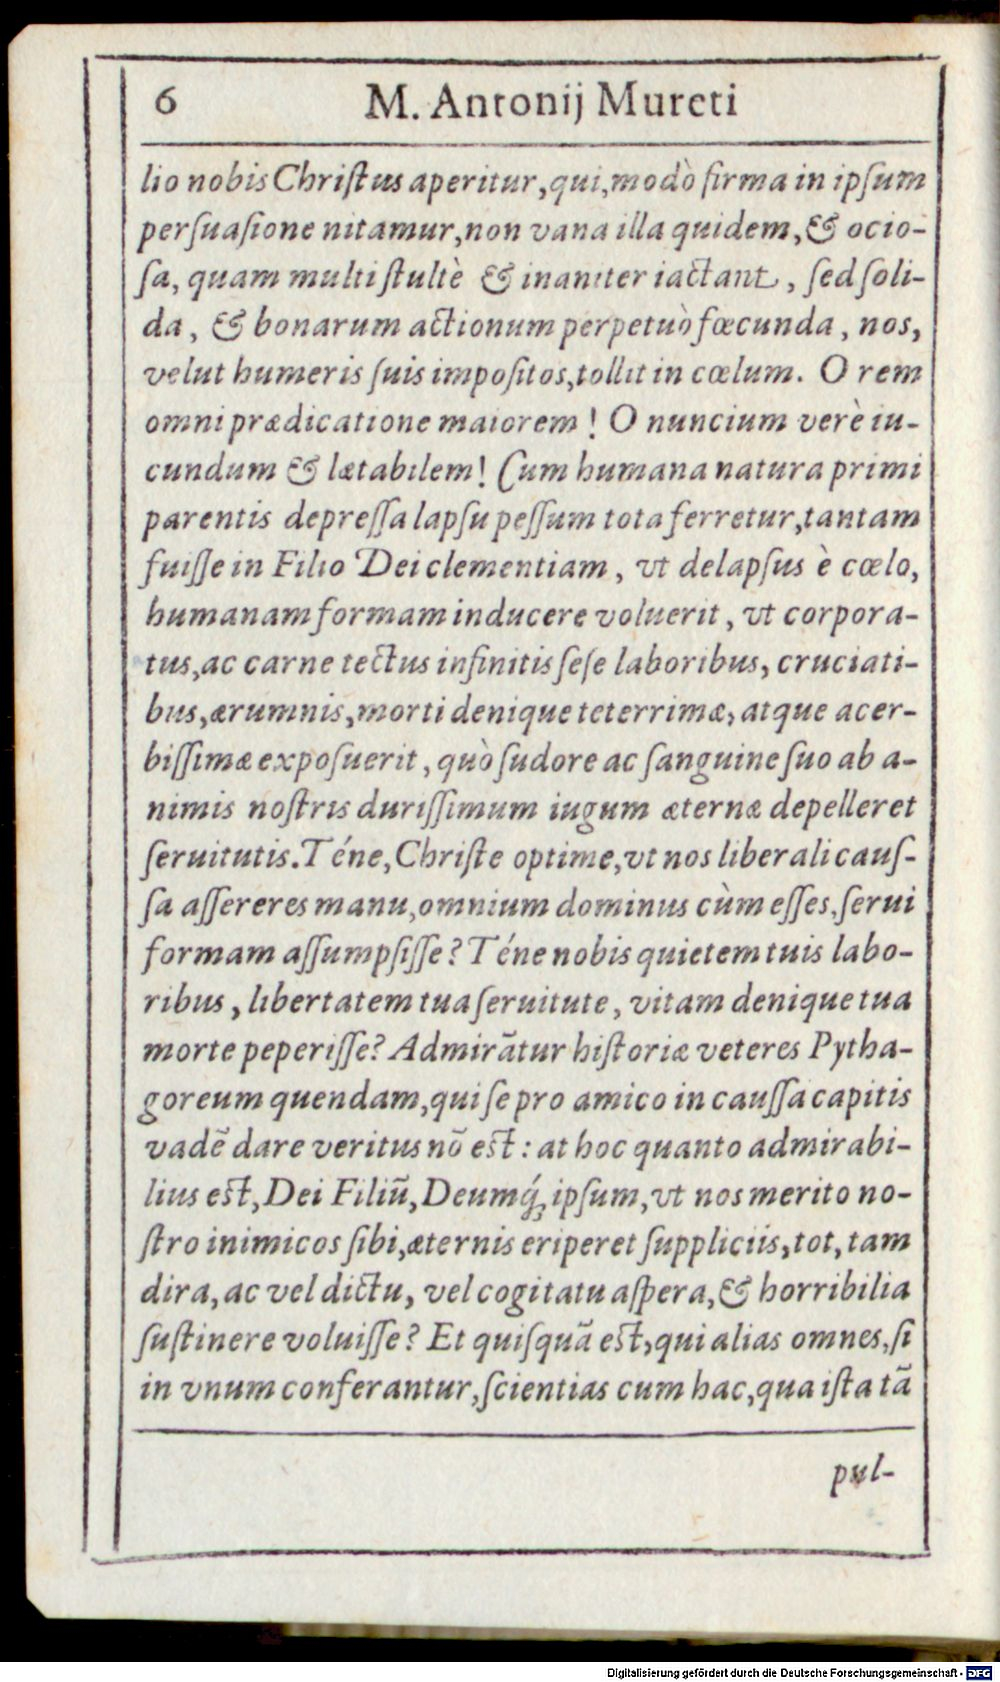 6 M. Antonij Mureti
lio nobis Chriſtus aperitur, qui, modò firma in ipſum
perſuaſione nitamur, non vana illa quidem, & ocio-
ſa, quam multi ſtultè & inaniter iactant, ſed ſoli-
da, & bonarum actionum perpetuò fœcunda, nos,
velut humeris ſuis impoſitos, tollit in cœlum. O rem
omni prædicatione maiorem! O nuncium verè iu-
cundum & lætabilem! Cum humana natura primi
parentis depreſſa lapſu peſſum tota ferretur, tantam
fuiſſe in Filio Dei clementiam, vt delapſus è cœlo,
humanam formam inducere voluerit, vt corpora-
tus, ac carne tectus infinitis ſeſe laboribus, cruciati-
bus, ærumnis, morti denique teterrimæ, atque acer-
biſſimæ expoſuerit, quò ſudore ac ſanguine ſuo ab a-
nimis noſtris duriſſimum iugum æternæ depelleret
ſeruitutis. Téne, Chriſte optime, vt nos liberali cauſ-
ſa aſſereres manu, omnium dominus cùm eſſes, ſerui
formam aſſumpſiſſe? Téne nobis quietem tuis labo-
ribus, libertatem tua ſeruitute, vitam denique tua
morte peperiſſe? Admirātur hiſtoriæ veteres Pytha-
goreum quendam, qui ſe pro amico in cauſſa capitis
vadē dare veritus nō est: at hoc quanto admirabi-
lius est, Dei Filiū, Deumq́; ipſum, vt nos merito no-
ſtro inimicos ſibi, æternis eriperet ſuppliciis, tot, tam
dira, ac vel dictu, vel cogitatu aſpera, & horribilia
ſuſtinere voluiſſe? Et quiſquā est, qui alias omnes, ſi
in vnum conferantur, ſcientias cum hac, qua iſta tā
pul-
Digitalisierung gefördert durch die Deutsche Forschungsgemeinschaft - DFG